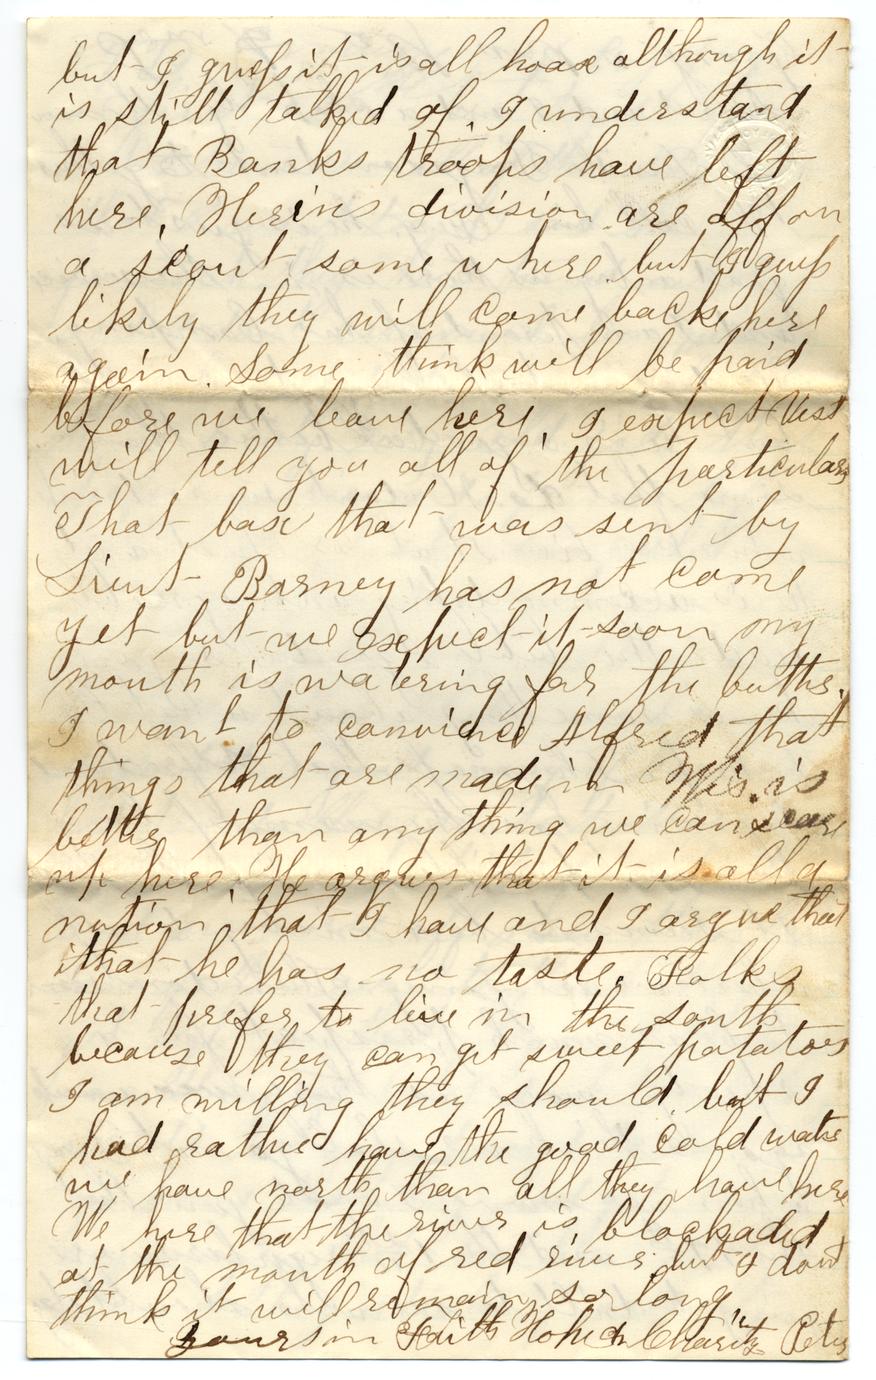 but I guess it is all hoax although it
is still talked of. I understand
that Banks troops have left
here, Herins division are off on
a scout some where but I guess
likely they will come backe here
again. Some think will be paid
before we leave here. I expect Vest
will tell you all of the particulars
That box that was sent by
Lieut Barney has not come
yet but we expect it soon my
mouth is watering for the butter.
I want to convince Alfred that
things that are made in Wis. is
better than any thing we can scare
up here. He argues that it is all a
notion that I have and I argue that
that he has no taste. Folks
that prefer to live in the south
because they can get sweet potatoes
I am willing they should. but I
had rather have the good cold water
we have north than all they have here
We here that the river is blockaded
at the mouth of red river but I dont
think it will remain so long
Yours in Faith Hope &amp; Charity Peter